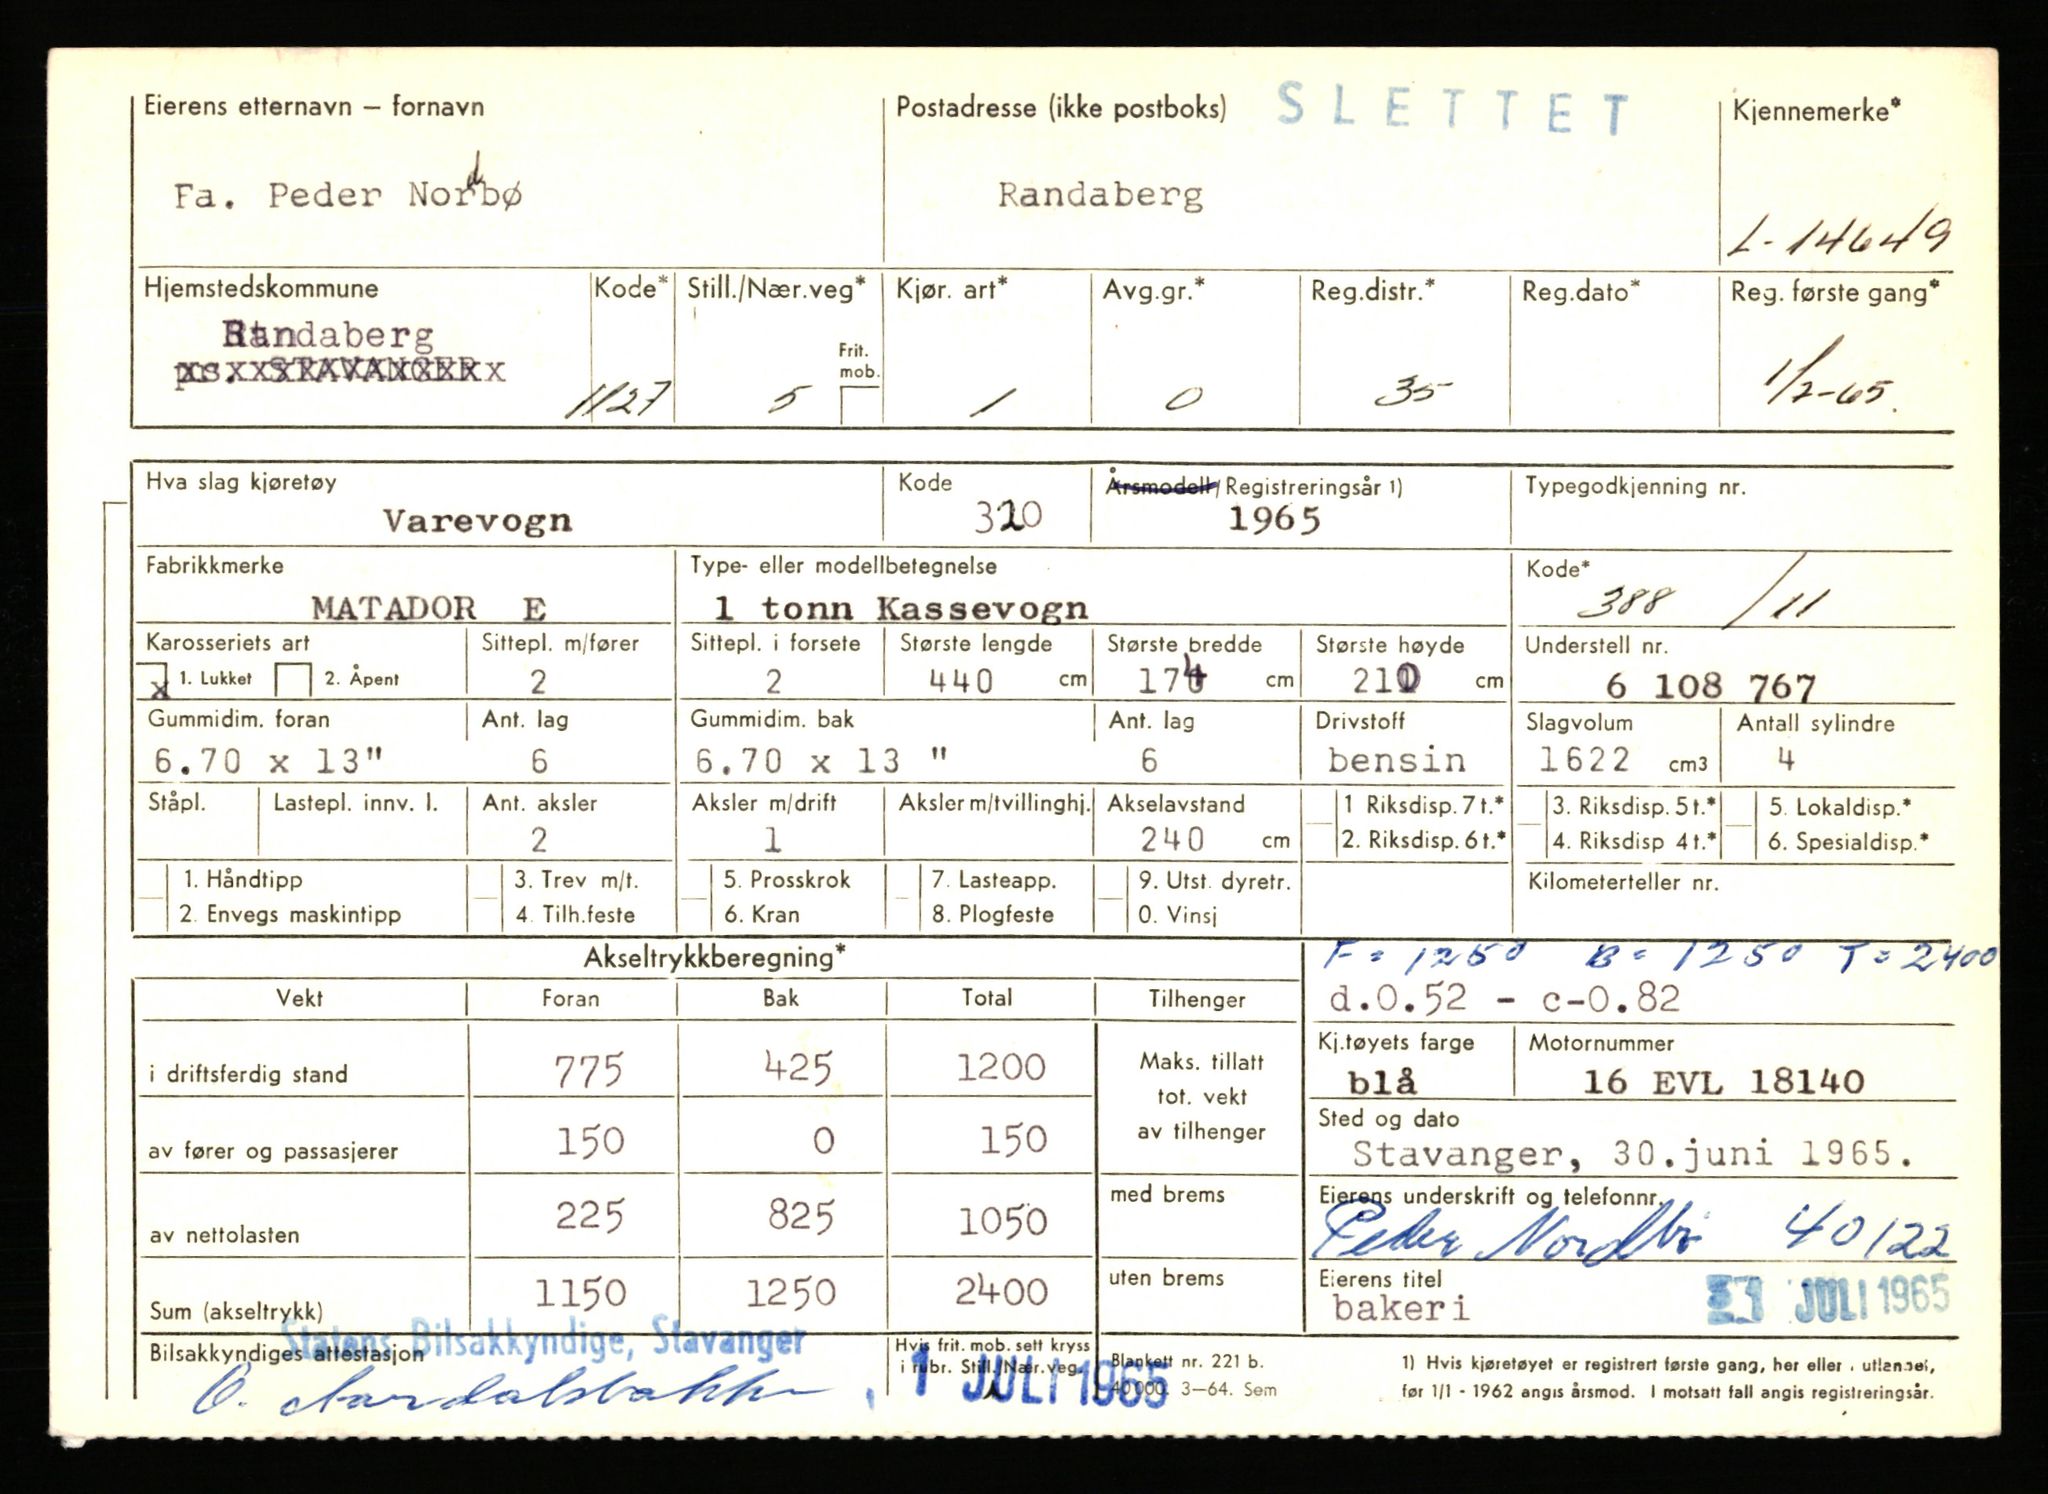 SLETTET
Eierens etternavn – fornavn Postadresse (ikke postboks) Kjennemerke*
Fa. Peder Nordbø Randaberg
L-14649
Hjemstedskommune Kode* Still./Nær.veg* Kjør. art* Avg.gr.* Reg.distr.* Reg.dato* Reg. første gang*
Randaberg
STAVANGER
Frit. mob.
1127 5 1 0 35 1/7-65.
Hva slag kjøretøy Kode Årsmodell/Registreringsår 1) Typegodkjenning nr.
Varevogn 320 1965
Fabrikkmerke Type- eller modellbetegnelse Kode*
MATADOR E 1 tonn Kassevogn 388/11
Karosseriets art Sittepl. m/fører Sittepl. i forsete Største lengde Største bredde Største høyde Understell nr.
x 1. Lukket 2. Åpent 2 2 440 cm 174 cm 210 cm 6 108 767
Gummidim. foran Ant. lag Gummidim. bak Ant. lag Drivstoff Slagvolum Antall sylindre
6.70 x 13" 6 6.70 x 13 " 6 bensin 1622 cm3 4
Ståpl. Lastepl. innv. l. Ant. aksler Aksler m/drift Aksler m/tvillinghj. Akselavstand 1 Riksdisp. 7 t.* 3. Riksdisp. 5 t.* 5. Lokaldisp.*
2 1 240 cm 2. Riksdisp. 6 t.* 4. Riksdisp 4 t.* 6. Spesialdisp.*
1. Håndtipp 3. Trev m/t. 5. Prosskrok 7. Lasteapp. 9. Utst. dyretr. Kilometerteller nr.
2. Envegs maskintipp 4. Tilh.feste 6. Kran 8. Plogfeste 0. Vinsj
Akseltrykkberegning* F = 1250 B = 1250 T = 2400
Vekt Foran Bak Total Tilhenger d.0.52 - c-0.82
Kj.tøyets farge Motornummer
i driftsferdig stand 775 425 1200 Maks. tillatt blå 16 EVL 18140
tot. vekt
av tilhenger
Sted og dato
av fører og passasjerer 150 0 150 Stavanger, 30.juni 1965.
med brems Eierens underskrift og telefonnr.
av nettolasten 225 825 1050 Peder Nordbø 40122
uten brems Eierens titel
Sum (akseltrykk) 1150 1250 2400 bakeri 1 JULI 1965
Statens Bilsakkyndige, Stavanger
Bilsakkyndiges attestasjon Hvis frit. mob. sett kryss
i rubr. Still/Nær.veg.
, 1 JULI 1965
Blankett nr. 221 b.
40 000. 3–64. Sem
1) Hvis kjøretøyet er registrert første gang, her eller i utlandet,
før 1/1 - 1962 angis årsmod. I motsatt fall angis registreringsår.